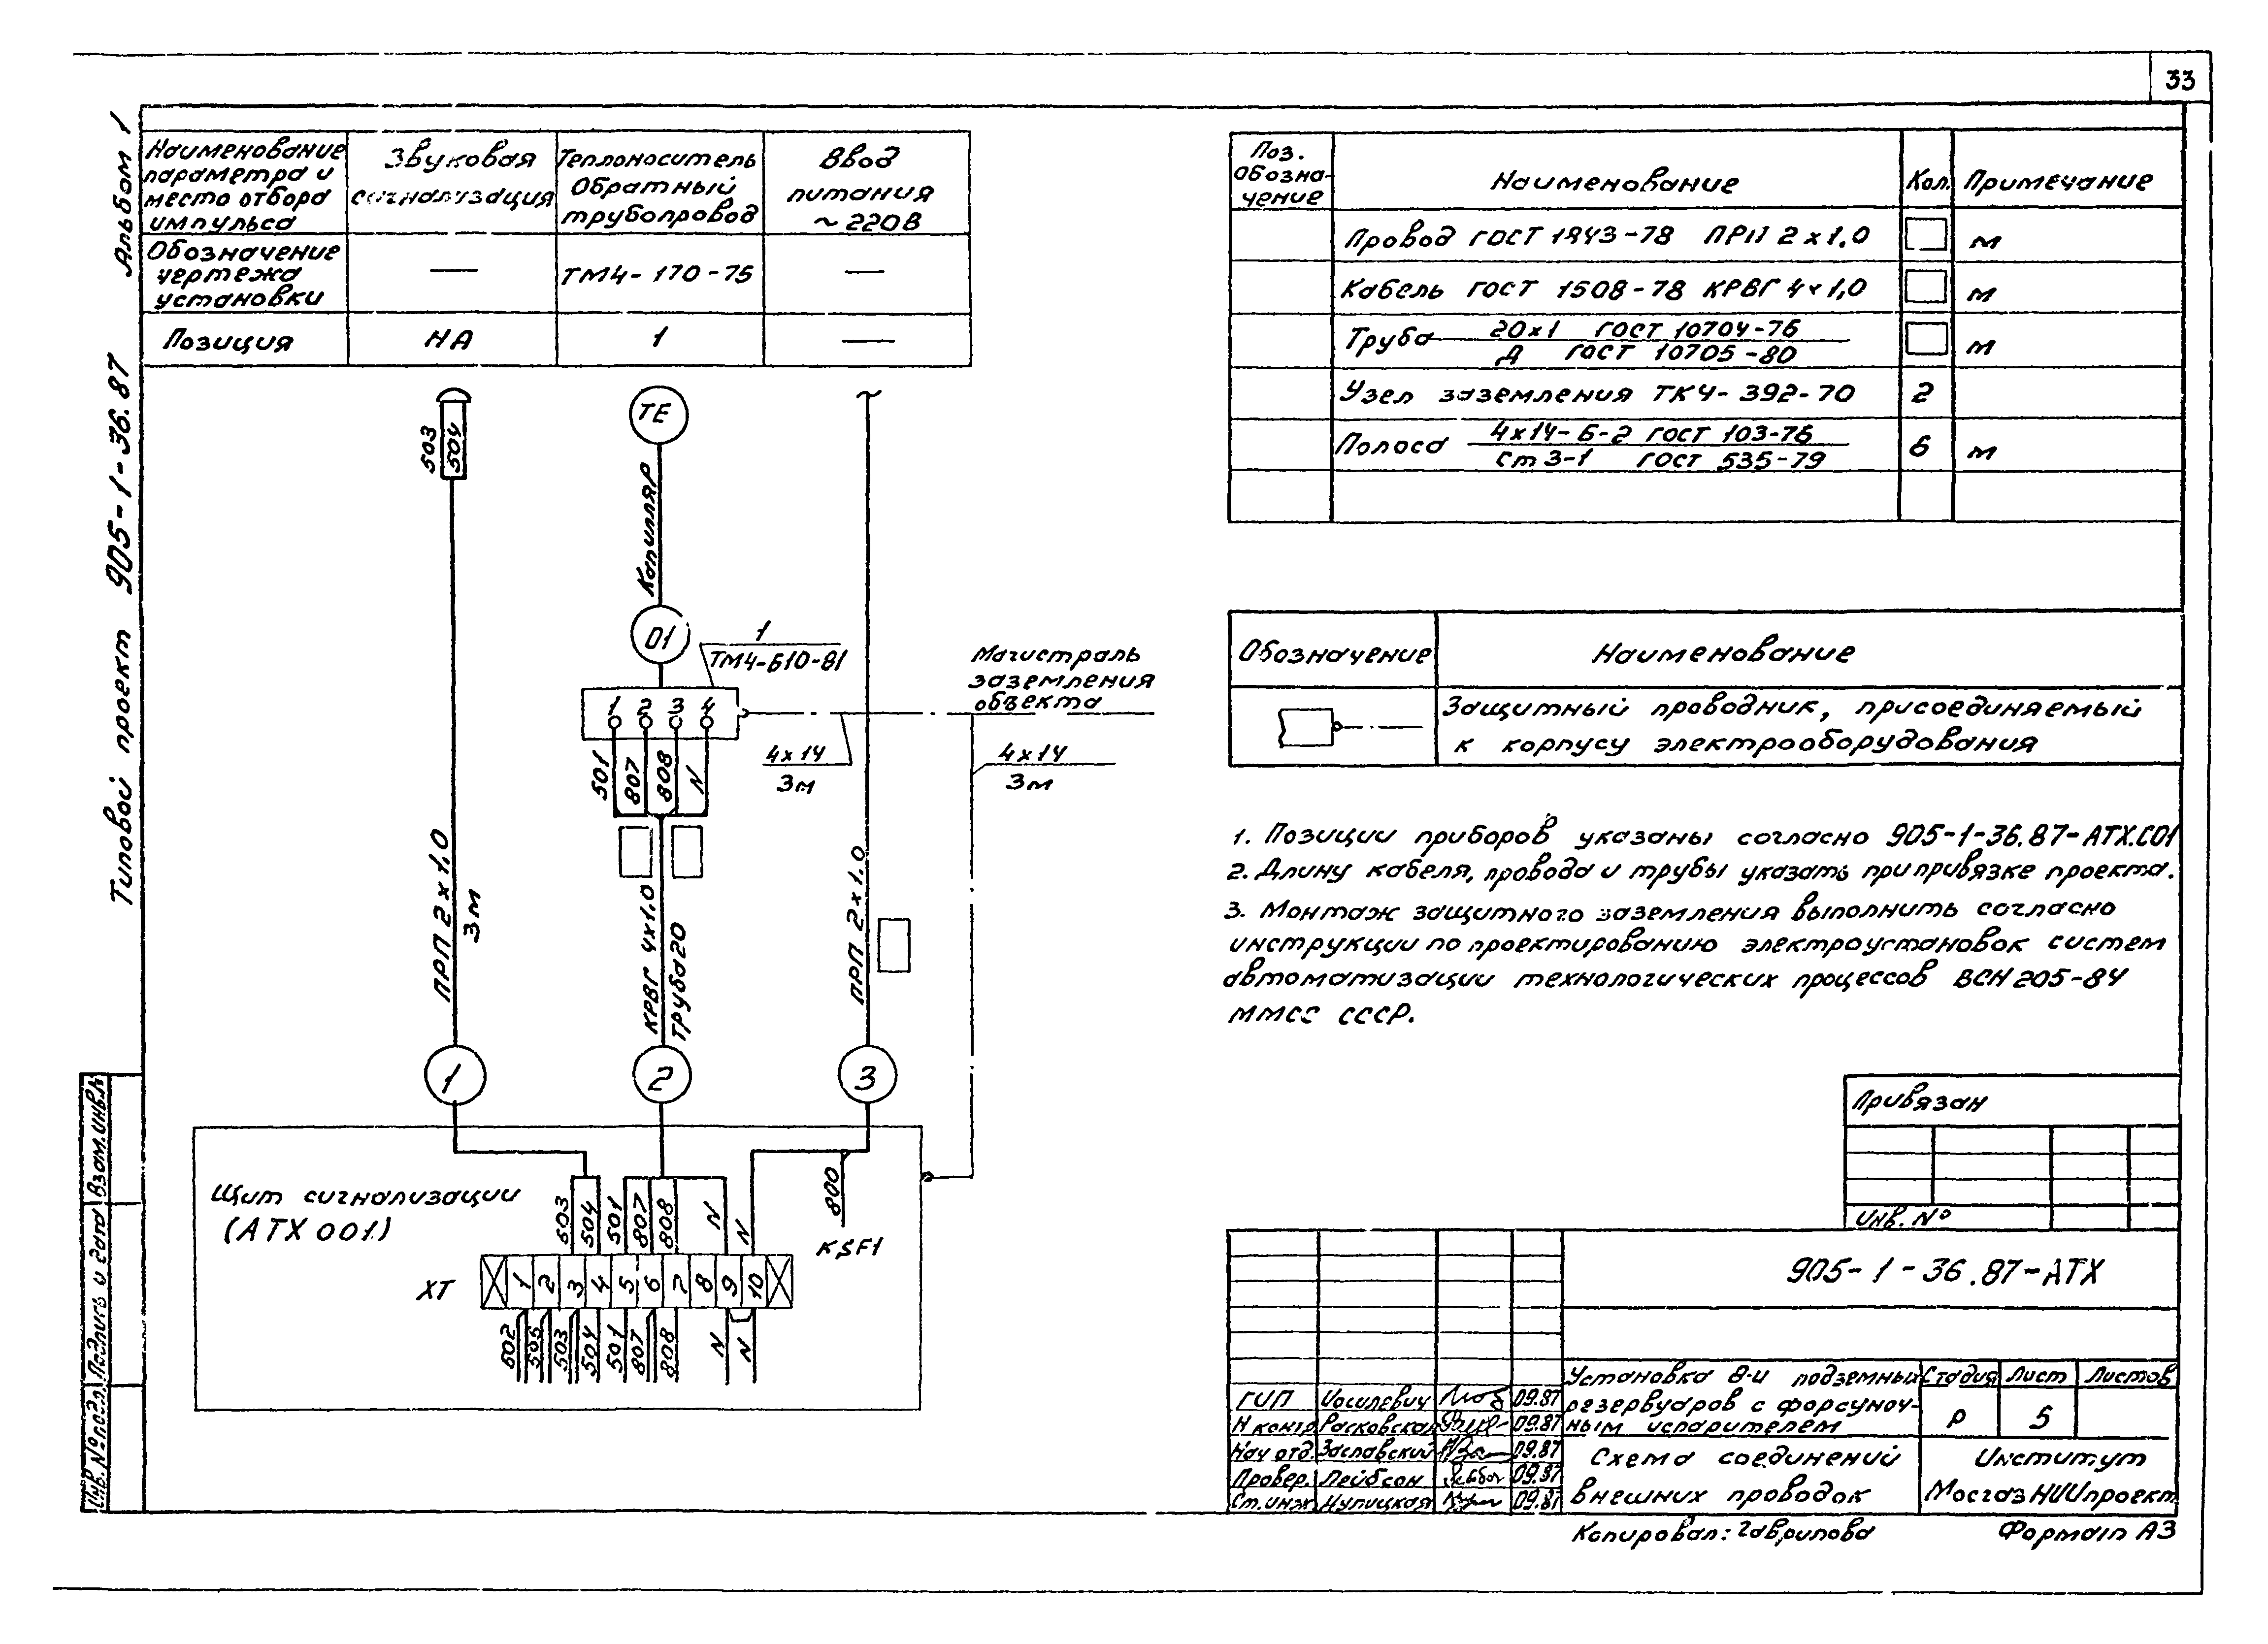 33
Альбом 1
Типовой проект 905-1-36.87
Наименование
параметра и
место отбора
импульса
Звуковая
сигнализация
Теплоноситель
Обратный
трубопровод
Ввод
питания
~220В
Обозначение
чертежа
установки
—
ТМ4-170-75
—
Позиция
НА
1
—
503
504
ТЕ
Капилляр
01
1
ТМ4-610-81
1 2 3 4
501
807
808
N
Магистраль
заземления
объекта
4х14
3м
4х14
3м
ПРП 2х1,0
3м
КРВГ 4х1,0
Труба20
ПРП 2х1,0
1
2
3
Щит сигнализации
(АТХ 001)
503
504
501
807
808
N
N
800
KSF1
ХТ
1 2 3 4 5 6 7 8 9 10
502
505
503
504
501
807
808
N
N
Поз.
Обозна-
чение
Наименование
Кол.
Примечание
Провод ГОСТ 1843-78 ПРП 2х1,0
м
Кабель ГОСТ 1508-78 КРВГ 4х1,0
м
Труба 20х1 ГОСТ 10704-76
Д ГОСТ 10705-80
м
Узел заземления ТК4-392-70
2
Полоса 4х14-Б-2 ГОСТ 103-76
Ст3-1 ГОСТ 535-79
6
м
Обозначение
Наименование
Защитный проводник, присоединяемый
к корпусу электрооборудования
1. Позиции приборов указаны согласно 905-1-36.87-АТХ.С01
2. Длину кабеля, провода и трубы указать при привязке проекта.
3. Монтаж защитного заземления выполнить согласно
инструкции по проектированию электроустановок систем
автоматизации технологических процессов ВСН 205-84
ММСС СССР.
Привязан
Инв. №
905-1-36.87-АТХ
Установка 8-и подземных
резервуаров с форсуноч-
ным испарителем
Стадия
Лист
Листов
Р
5
ГИП Иосилевич 09.87
Н контр Расковская 09.87
Нач отд. Заславский 09.87
Провер. Лейбсон 09.87
Ст.инж 09.87
Схема соединений
внешних проводок
Институт
МосгазНИИпроект
Копировал: Гаврилова
Формат А3
Взам.инв.№
Подпись и дата
Инв. № подл.